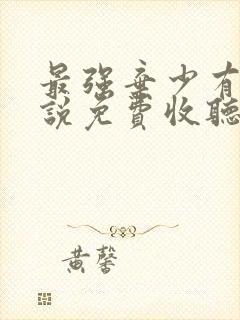 最强弃少有
說免費收聽
黄馨